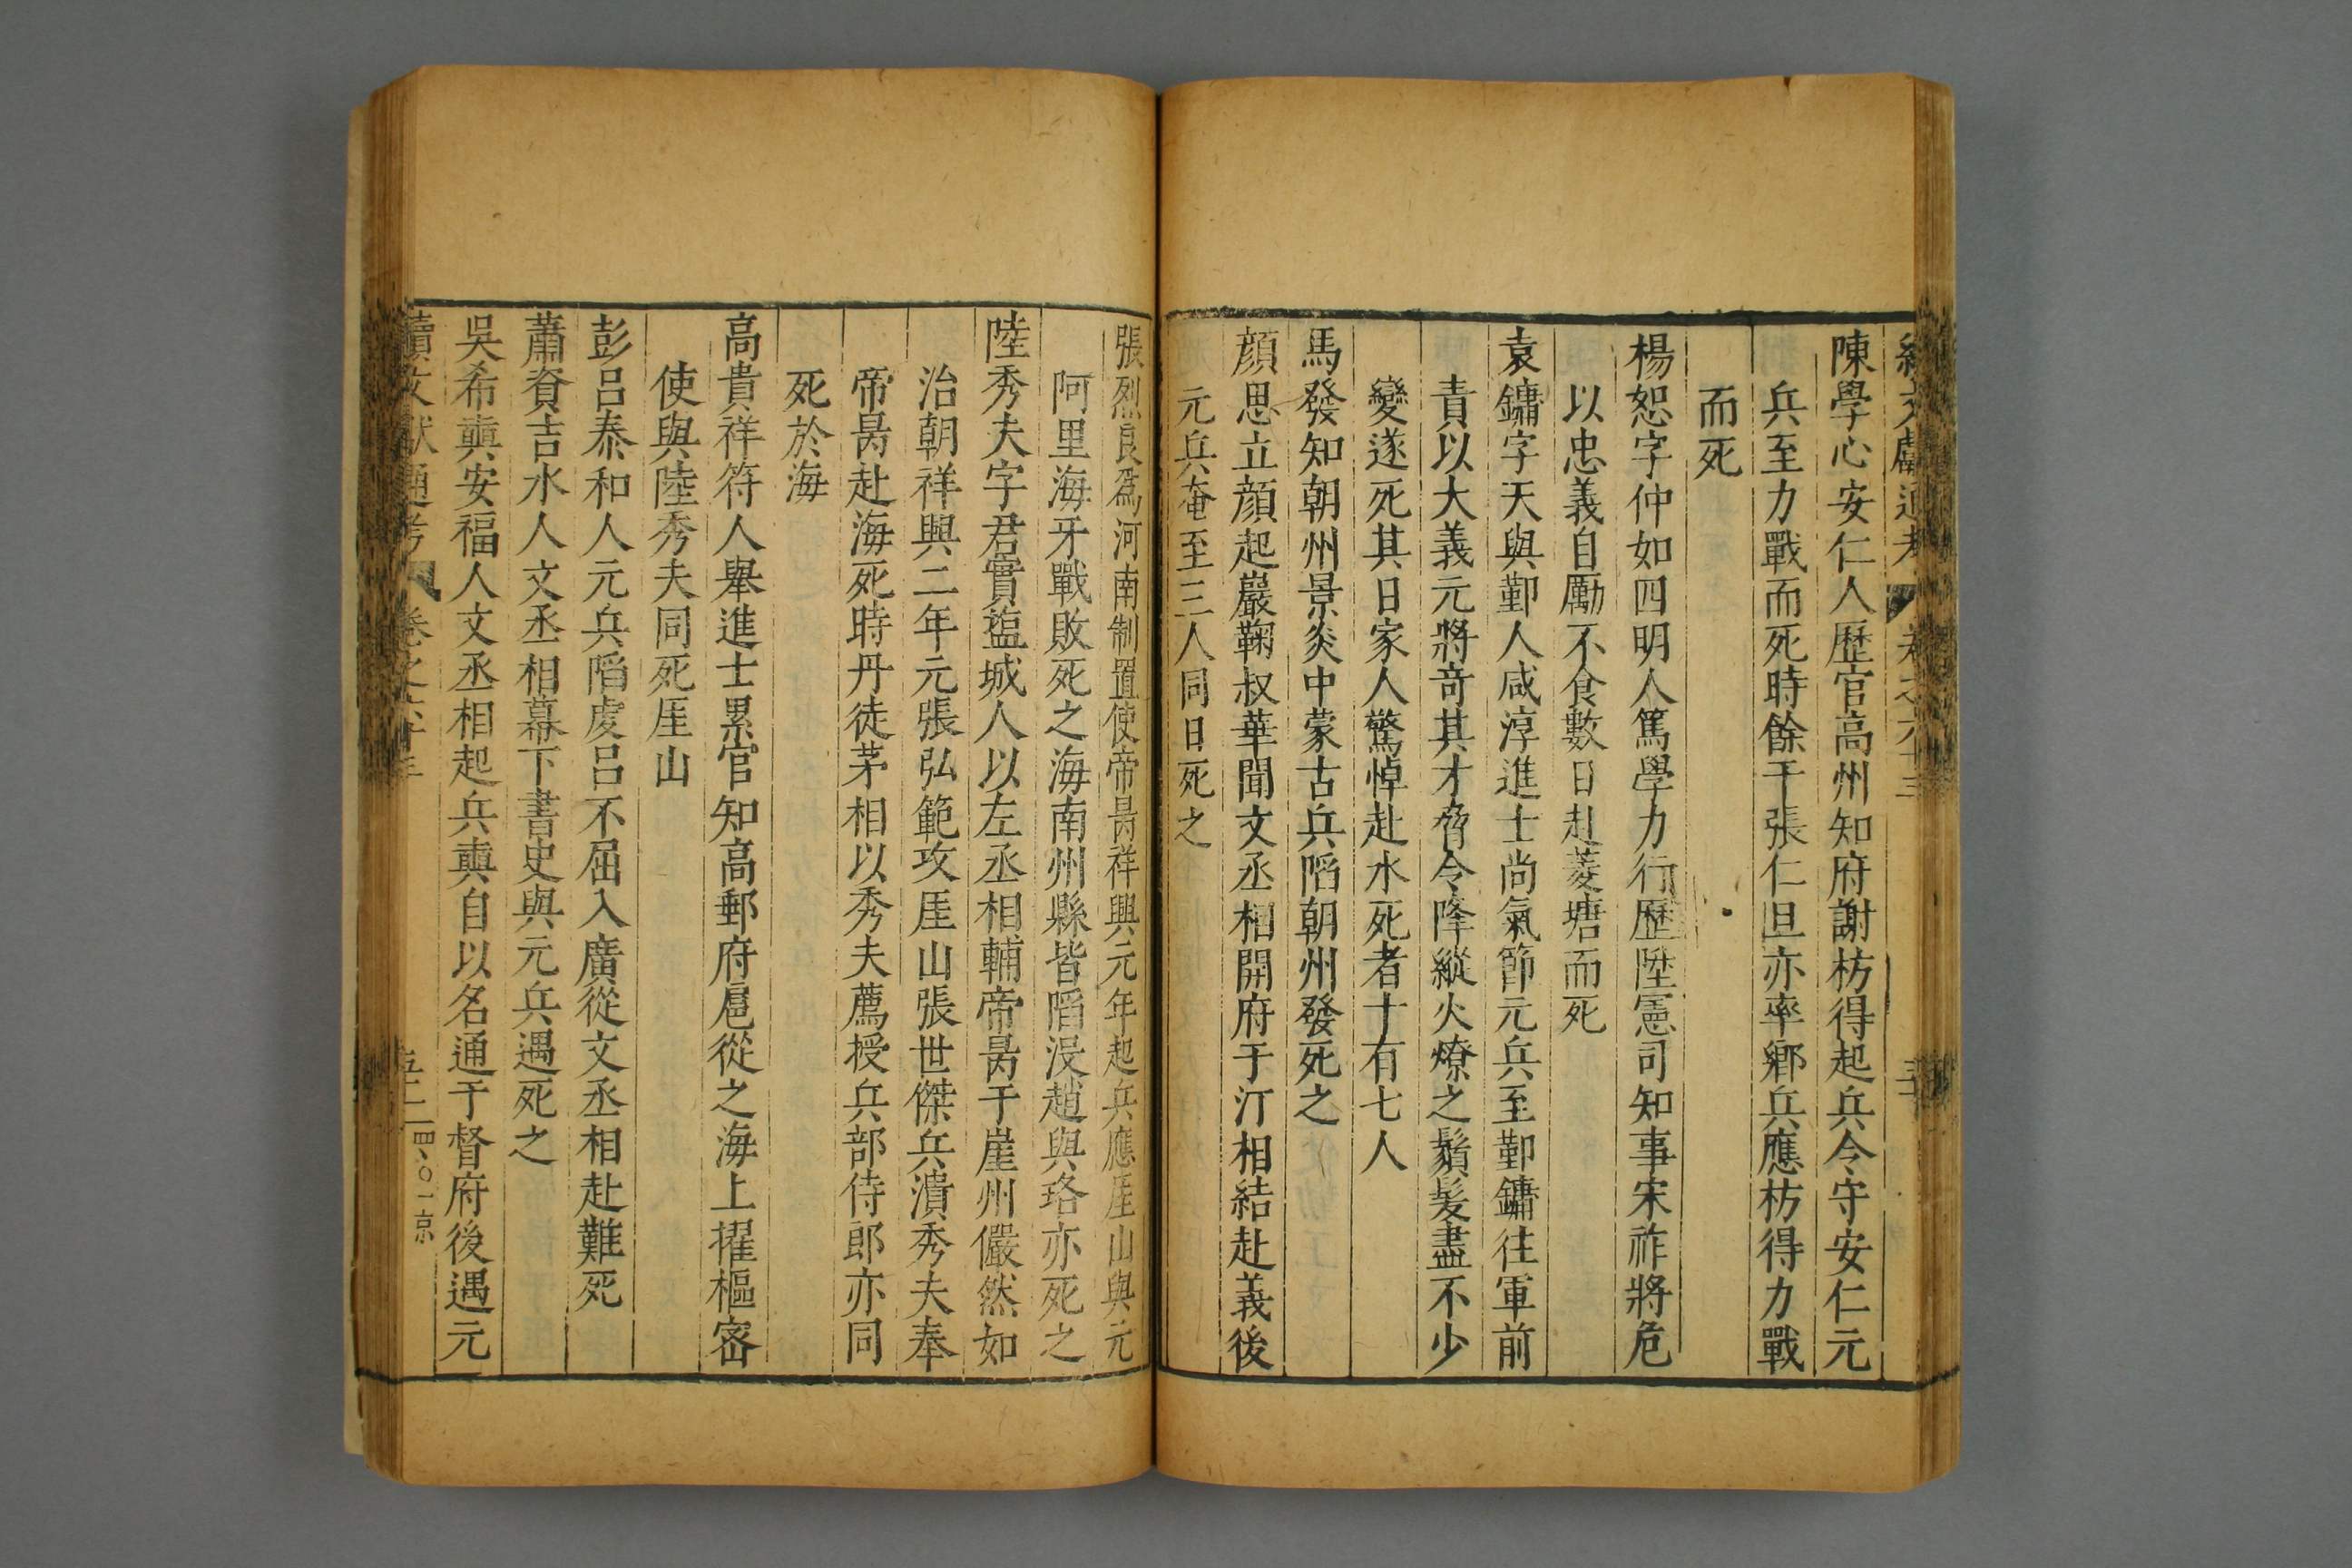 續文獻通考 卷之六十三
陳學心安仁人歷官高州知府謝枋得起兵令守安仁元
兵至力戰而死時餘干張仁旦亦率鄉兵應枋得力戰
而死
楊恕字仲如四明人篤學力行歷陞憲司知事宋祚將危
以忠義自勵不食數日赴菱塘而死
袁鏞字天與鄞人咸淳進士尚氣節元兵至鄞鏞往軍前
責以大義元將奇其才脅令降縱火燎之鬚髮盡不少
變遂死其日家人驚悼赴水死者十有七人
馬發知朝州景炎中蒙古兵陷朝州發死之
顔思立顔起巖鞠叔華聞文丞相開府于汀相結赴義後
元兵奄至三人同日死之
張烈良爲河南制置使帝昺祥興元年起兵應厓山與元
阿里海牙戰敗死之海南州縣皆陷没趙與珞亦死之
陸秀夫字君實塩城人以左丞相輔帝昺于崖州儼然如
治朝祥興二年元張弘範攻厓山張世傑兵潰秀夫奉
帝昺赴海死時丹徒茅相以秀夫薦授兵部侍郎亦同
死於海
高貴祥符人舉進士累官知高郵府扈從之海上擢樞密
使與陸秀夫同死厓山
彭呂泰和人元兵陷虔呂不屈入廣從文丞相赴難死
蕭資吉水人文丞相幕下書史與元兵遇死之
吳希奭安福人文丞相起兵奭自以名通于督府後遇元
續文獻通考 卷之六十三 五二 四〇一京